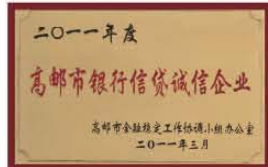 二〇一一年度
高邮市银行信贷诚信企业
高邮市金融稳定工作协调小组办公室
二〇一一年三月